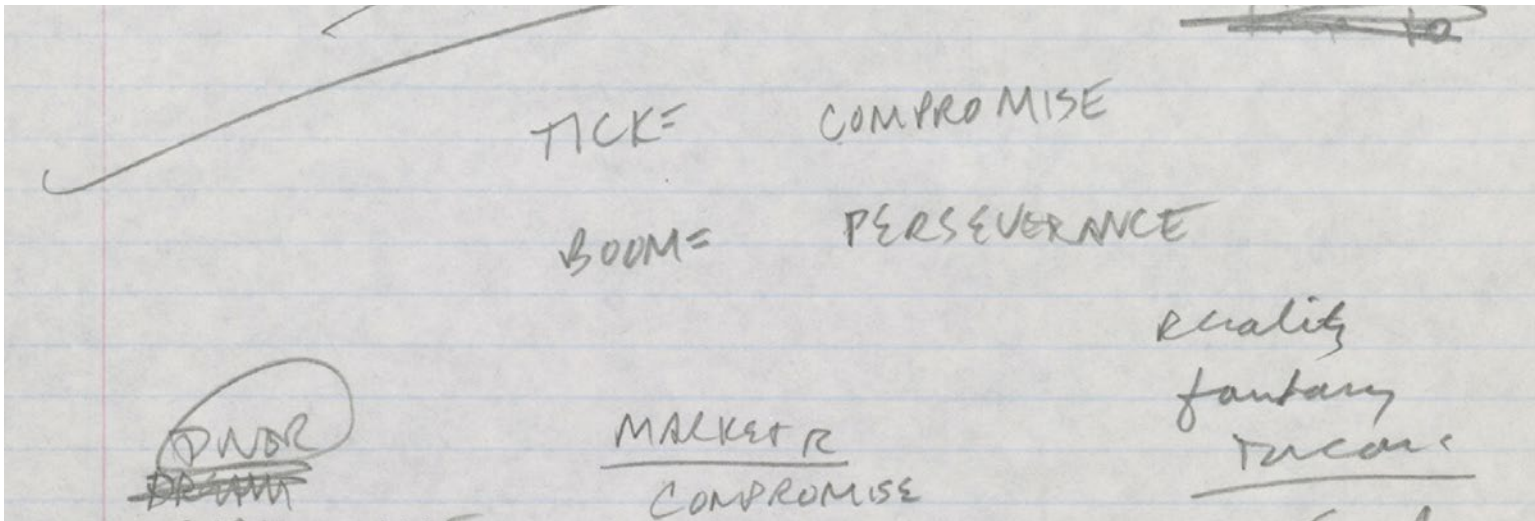 TICK= COMPROMISE
BOOM= PERSEVERANCE
reality
fantasy
DINER
MARKET R
COMPROMISE